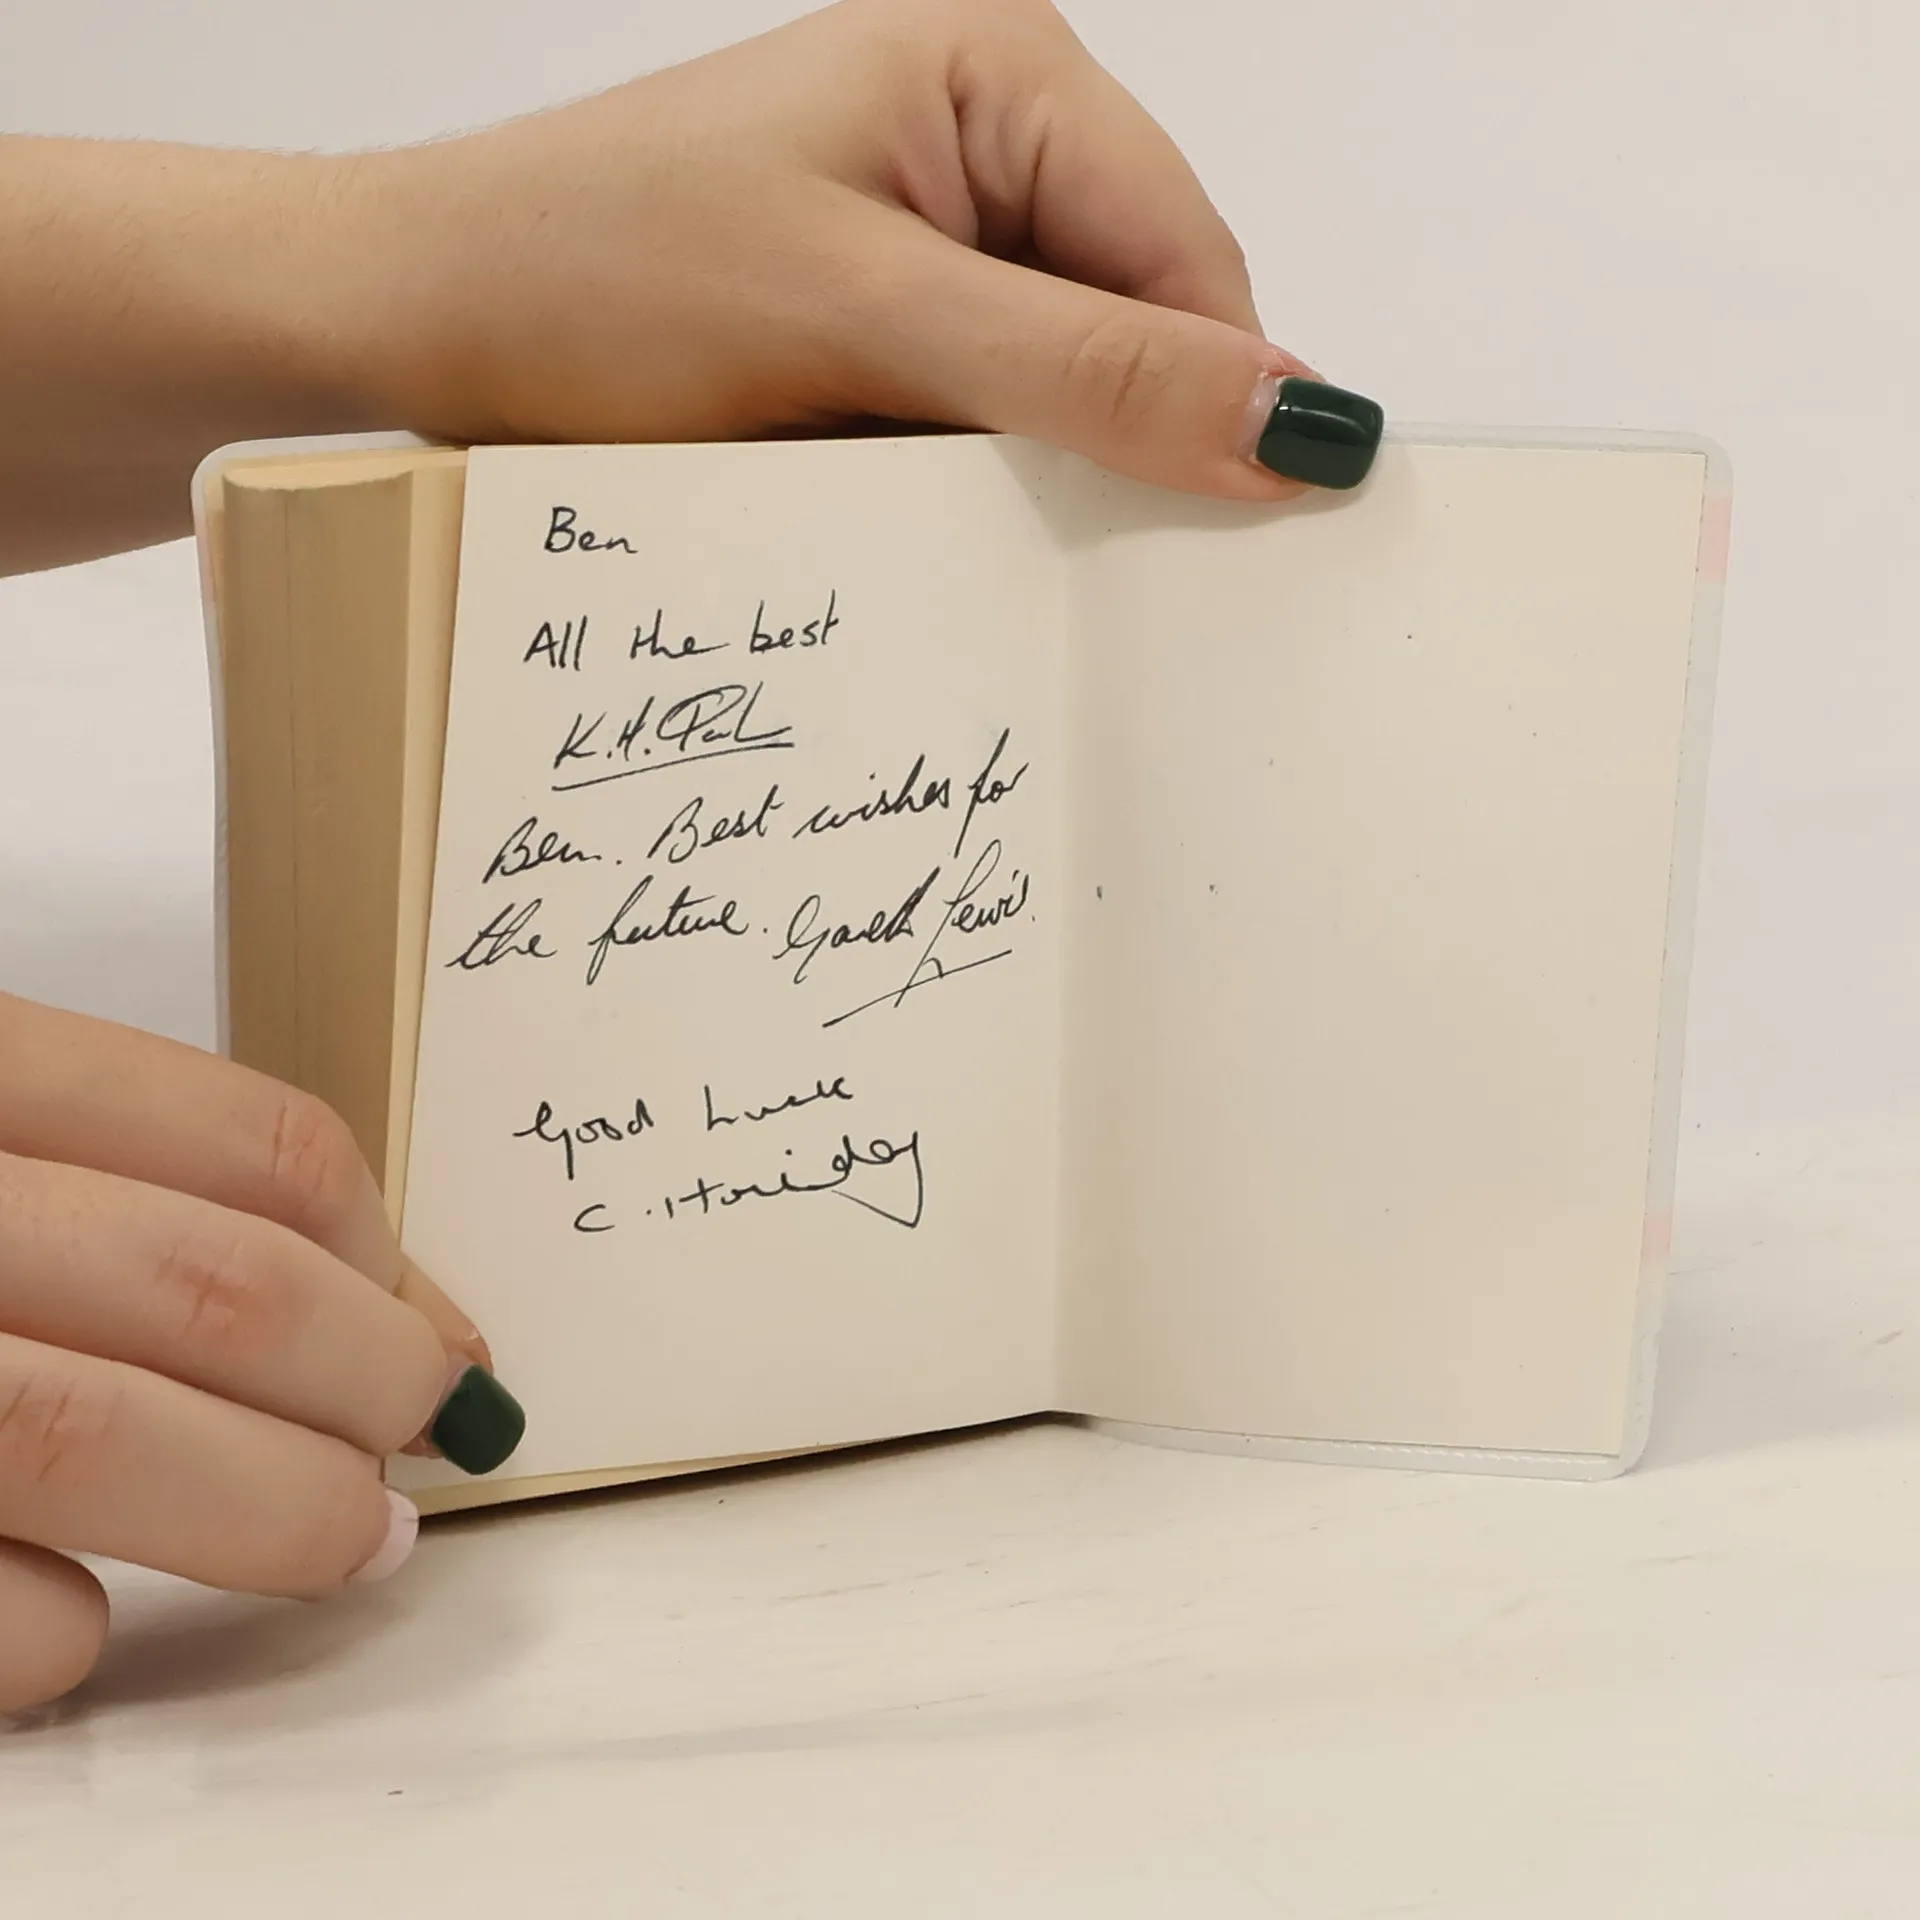 Ben
All the best
K.H. Paul
Ben. Best wishes for
the future. Gareth Lewis.
Good Luck
C.